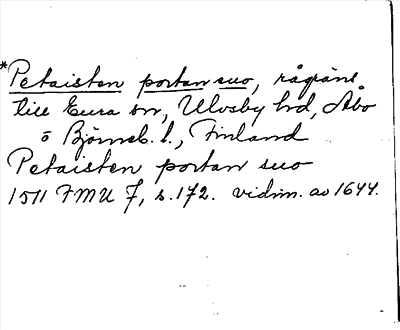 *Petaisten portan suo, rågräns
till Eura sn, Ulvsby hd, Åbo
o Björneb. l., Finland
Petaisten portan suo
1511 FMU 7, s. 172. vidim. av 1644.